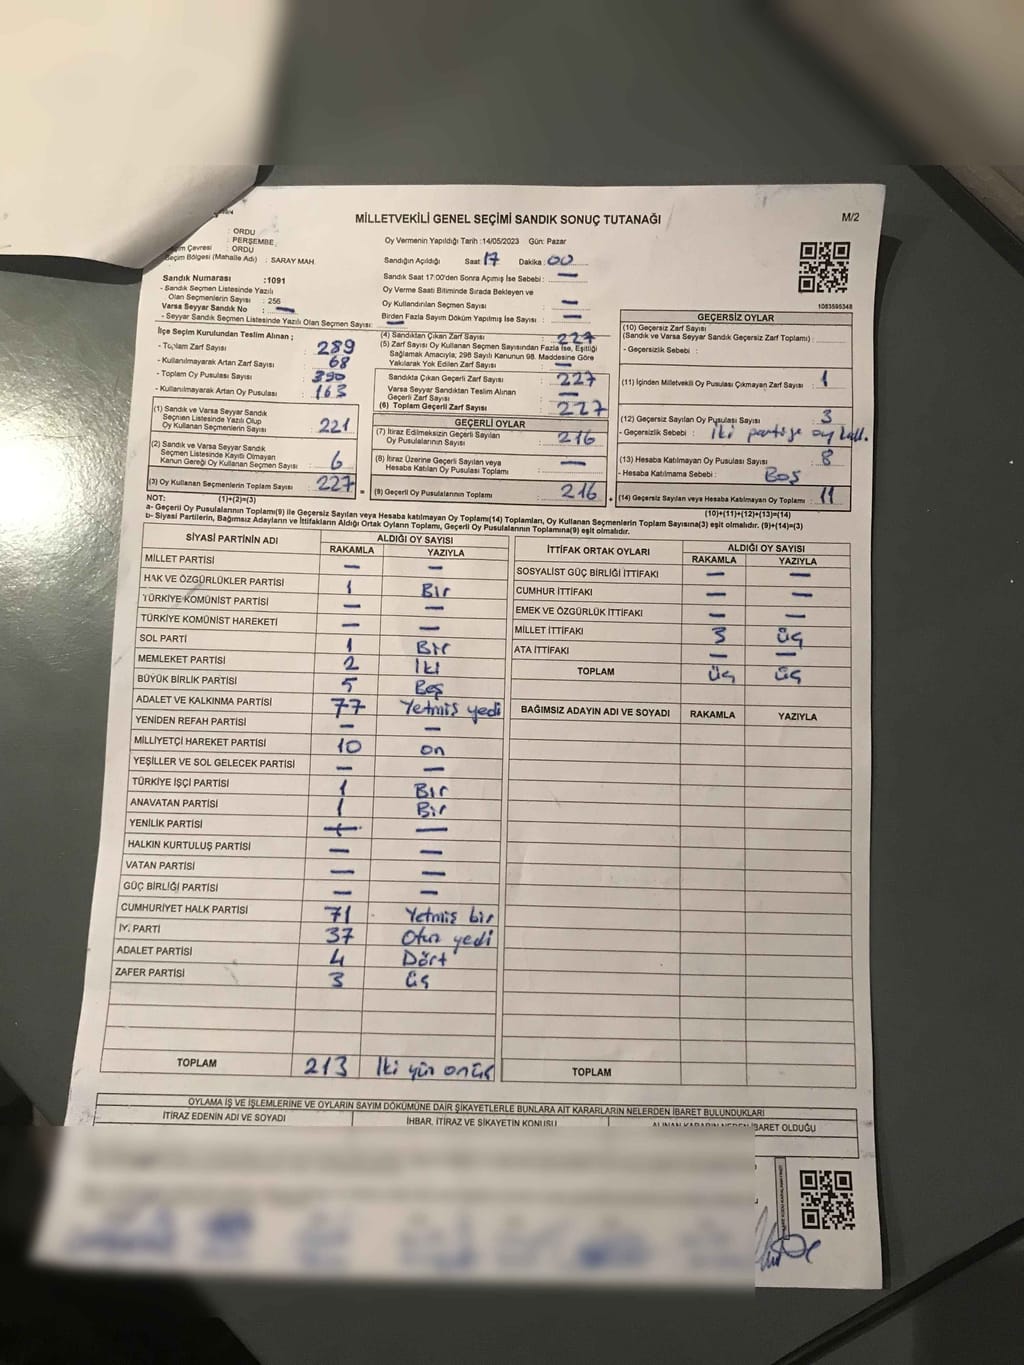 MİLLETVEKİLİ GENEL SEÇİMİ SANDIK SONUÇ TUTANAĞI
M/2
: ORDU
: PERŞEMBE
Seçim Çevresi : ORDU
Seçim Bölgesi (Mahalle Adı) : SARAY MAH.
Oy Vermenin Yapıldığı Tarih :14/05/2023 Gün: Pazar
Sandığın Açıldığı Saat 17 Dakika : 00
Sandık Saat 17:00'den Sonra Açımış İse Sebebi : —
Oy Verme Saati Bitiminde Sırada Bekleyen ve
Oy Kullandırılan Seçmen Sayısı : —
Birden Fazla Sayım Döküm Yapılmış İse Sayısı : —
1083595348
Sandık Numarası :1091
- Sandık Seçmen Listesinde Yazılı
Olan Seçmenlerin Sayısı : 256
Varsa Seyyar Sandık No : —
- Seyyar Sandık Seçmen Listesinde Yazılı Olan Seçmen Sayısı: —
İlçe Seçim Kurulundan Teslim Alınan ;
- Toplam Zarf Sayısı : 289
- Kullanılmayarak Artan Zarf Sayısı : 68
- Toplam Oy Pusulası Sayısı : 390
- Kullanılmayarak Artan Oy Pusulası : 163
(1) Sandık ve Varsa Seyyar Sandık
Seçmen Listesinde Yazılı Olup
Oy Kullanan Seçmenlerin Sayısı : 221
(2) Sandık ve Varsa Seyyar Sandık
Seçmen Listesinde Kayıtlı Olmayan
Kanun Gereği Oy Kullanan Seçmen Sayısı : 6
(3) Oy Kullanan Seçmenlerin Toplam Sayısı : 227
(1)+(2)=(3)
(4) Sandıktan Çıkan Zarf Sayısı : 227
(5) Zarf Sayısı Oy Kullanan Seçmen Sayısından Fazla İse, Eşitliği
Sağlamak Amacıyla; 298 Sayılı Kanunun 98. Maddesine Göre
Yakılarak Yok Edilen Zarf Sayısı : —
Sandıkta Çıkan Geçerli Zarf Sayısı : 227
Varsa Seyyar Sandıktan Teslim Alınan
Geçerli Zarf Sayısı : —
(6) Toplam Geçerli Zarf Sayısı : 227
GEÇERLİ OYLAR
(7) İtiraz Edilmeksizin Geçerli Sayılan
Oy Pusulalarının Sayısı : 216
(8) İtiraz Üzerine Geçerli Sayılan veya
Hesaba Katılan Oy Pusulası Toplamı : —
(9) Geçerli Oy Pusulalarının Toplamı : 216
GEÇERSİZ OYLAR
(10) Geçersiz Zarf Sayısı
(Sandık ve Varsa Seyyar Sandık Geçersiz Zarf Toplamı) :
- Geçersizlik Sebebi :
(11) İçinden Milletvekili Oy Pusulası Çıkmayan Zarf Sayısı : 1
(12) Geçersiz Sayılan Oy Pusulası Sayısı : 3
- Geçersizlik Sebebi : İki partiye oy
(13) Hesaba Katılmayan Oy Pusulası Sayısı : 8
- Hesaba Katılmama Sebebi : Boş
(14) Geçersiz Sayılan veya Hesaba Katılmayan Oy Toplamı : 11
(10)+(11)+(12)+(13)=(14)
NOT:
a- Geçerli Oy Pusulalarının Toplamı(9) ile Geçersiz Sayılan veya Hesaba Katılmayan Oy Toplamı(14) Toplamları, Oy Kullanan Seçmenlerin Toplam Sayısına(3) eşit olmalıdır. (9)+(14)=(3)
b- Siyasi Partilerin, Bağımsız Adayların ve İttifakların Aldığı Ortak Oyların Toplamı, Geçerli Oy Pusulalarının Toplamına(9) eşit olmalıdır.
SİYASİ PARTİNİN ADI ALDIĞI OY SAYISI
RAKAMLA YAZIYLA
MİLLET PARTİSİ — —
HAK VE ÖZGÜRLÜKLER PARTİSİ 1 Bir
TÜRKİYE KOMÜNİST PARTİSİ — —
TÜRKİYE KOMÜNİST HAREKETİ — —
SOL PARTİ 1 Bir
MEMLEKET PARTİSİ 2 İki
BÜYÜK BİRLİK PARTİSİ 5 Beş
ADALET VE KALKINMA PARTİSİ 77 Yetmiş yedi
YENİDEN REFAH PARTİSİ — —
MİLLİYETÇİ HAREKET PARTİSİ 10 on
YEŞİLLER VE SOL GELECEK PARTİSİ — —
TÜRKİYE İŞÇİ PARTİSİ 1 Bir
ANAVATAN PARTİSİ 1 Bir
YENİLİK PARTİSİ — —
HALKIN KURTULUŞ PARTİSİ — —
VATAN PARTİSİ — —
GÜÇ BİRLİĞİ PARTİSİ — —
CUMHURİYET HALK PARTİSİ 71 Yetmiş bir
İYİ PARTİ 37 Otuz yedi
ADALET PARTİSİ 4 Dört
ZAFER PARTİSİ 3 üç
TOPLAM 213 İki yüz onüç
İTTİFAK ORTAK OYLARI ALDIĞI OY SAYISI
RAKAMLA YAZIYLA
SOSYALİST GÜÇ BİRLİĞİ İTTİFAKI — —
CUMHUR İTTİFAKI — —
EMEK VE ÖZGÜRLÜK İTTİFAKI — —
MİLLET İTTİFAKI 3 üç
ATA İTTİFAKI — —
TOPLAM üç üç
BAĞIMSIZ ADAYIN ADI VE SOYADI RAKAMLA YAZIYLA
TOPLAM
OYLAMA İŞ VE İŞLEMLERİNE VE OYLARIN SAYIM DÖKÜMÜNE DAİR ŞİKAYETLERLE BUNLARA AİT KARARLARIN NELERDEN İBARET BULUNDUKLARI
İTİRAZ EDENİN ADI VE SOYADI İHBAR, İTİRAZ VE ŞİKAYETİN KONUSU ALINAN KARARIN NEDEN İBARET OLDUĞU